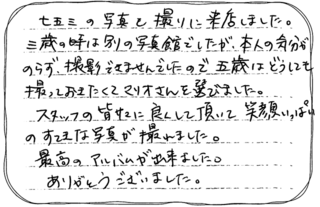 七五三の写真を撮りに来店しました。
三歳の時は別の写真館でしたが、本人の気分が
のらず、撮影できませんでしたので五歳はどうしても
撮っておきたくてマリオさんを選びました。
スタッフの皆様に良くして頂いて笑顔いっぱい
のすてきな写真が撮れました。
最高のアルバムが出来ました。
ありがとうございました。